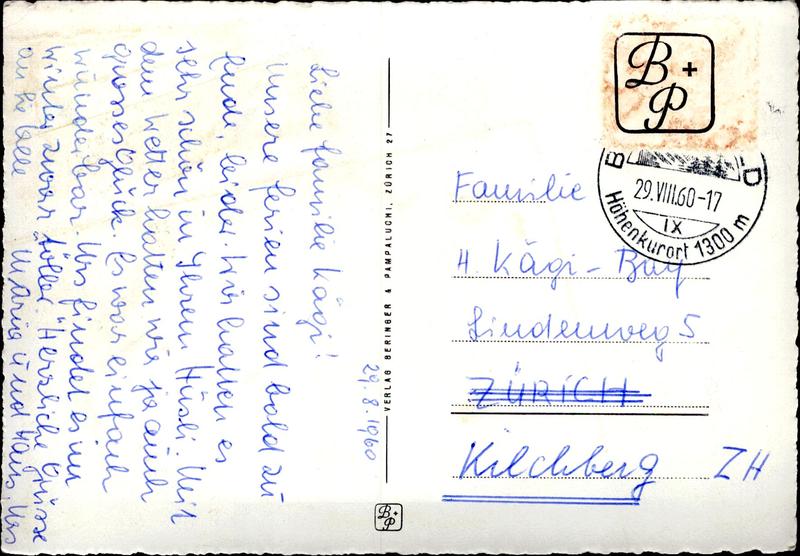 29.8.1960
Liebe Familie Kägi!
Unsere Ferien sind bald zu
Ende, leider. Wir hatten es
sehr schön in Ihrem Hüsli. Mit
dem Wetter hatten wir ja auch
grosses Glück. Es war einfach
wunderbar. Urs findet es im
Winter zwar "töller". Herzliche Grüsse
an Sie alle Maria und Hans, Urs
VERLAG BERINGER & PAMPALUCHI, ZÜRICH 27
B+P
B+P
B D
29.VIII.60-17
IX
Höhenkurort 1300 m
Familie
H. Kägi-Bay
Lindenweg 5
ZÜRICH
Kilchberg ZH